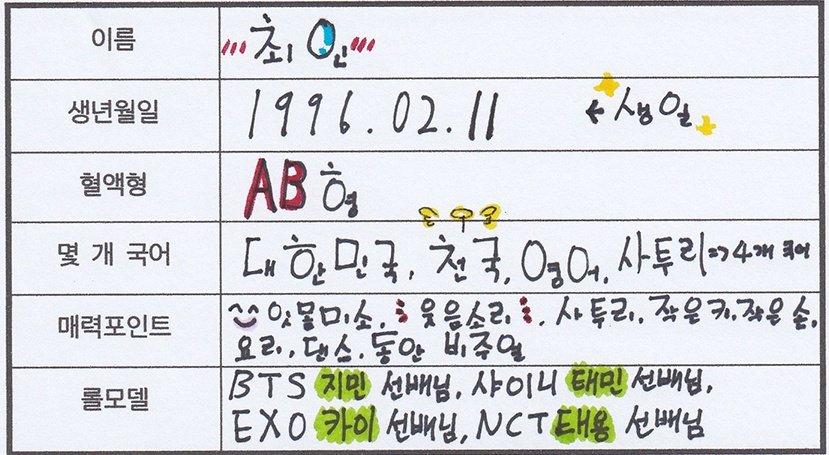 이름 최인
생년월일 1996.02.11 ←생일
혈액형 AB형
몇 개 국어 대한민국, 천국, 영어, 사투리=>4개 국어
매력포인트 잇몰미소, 웃음소리, 사투리, 작은 키, 작은 손,
요리, 댄스, 동안 비주얼
롤모델 BTS 지민 선배님, 샤이니 태민 선배님,
EXO 카이 선배님, NCT 태용 선배님